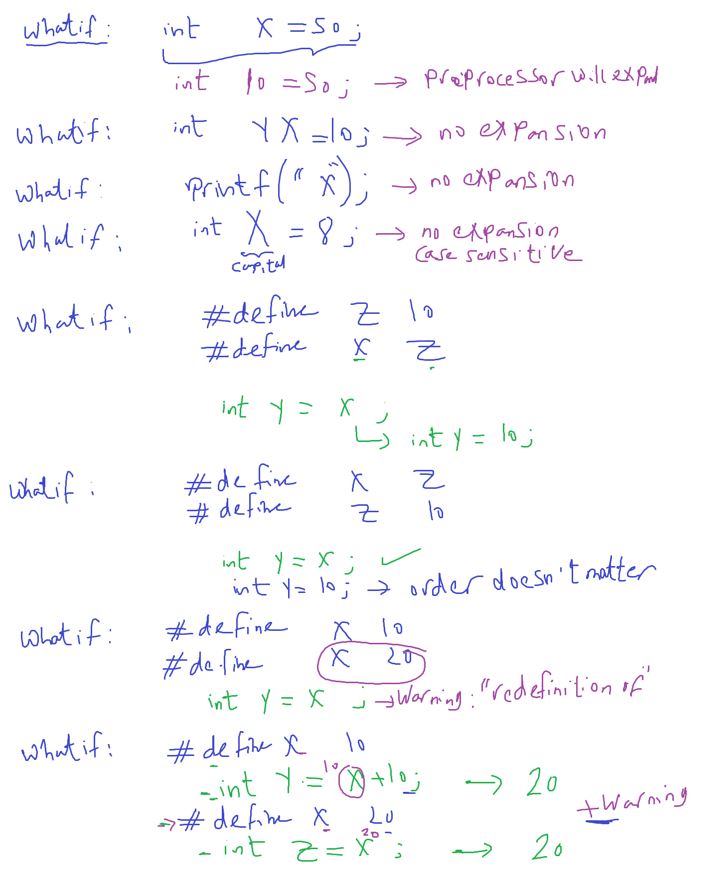 what if: int x = 50;
int 10 = 50; → preprocessor will expand
what if: int yx = 10; → no expansion
what if: printf("x"); → no expansion
what if: int X = 8; → no expansion
capital case sensitive
what if: #define z 10
#define x z
int y = x ;
↳ int y = 10;
what if: #define x z
#define z 10
int y = x ; ✓
int y = 10; → order doesn't matter
what if: #define x 10
#define x 20
int y = x ; → Warning: "redefinition of"
what if: #define x 10
10
- int y = x + 10; → 20
+ Warning
→ #define x 20
20
- int z = x ; → 20